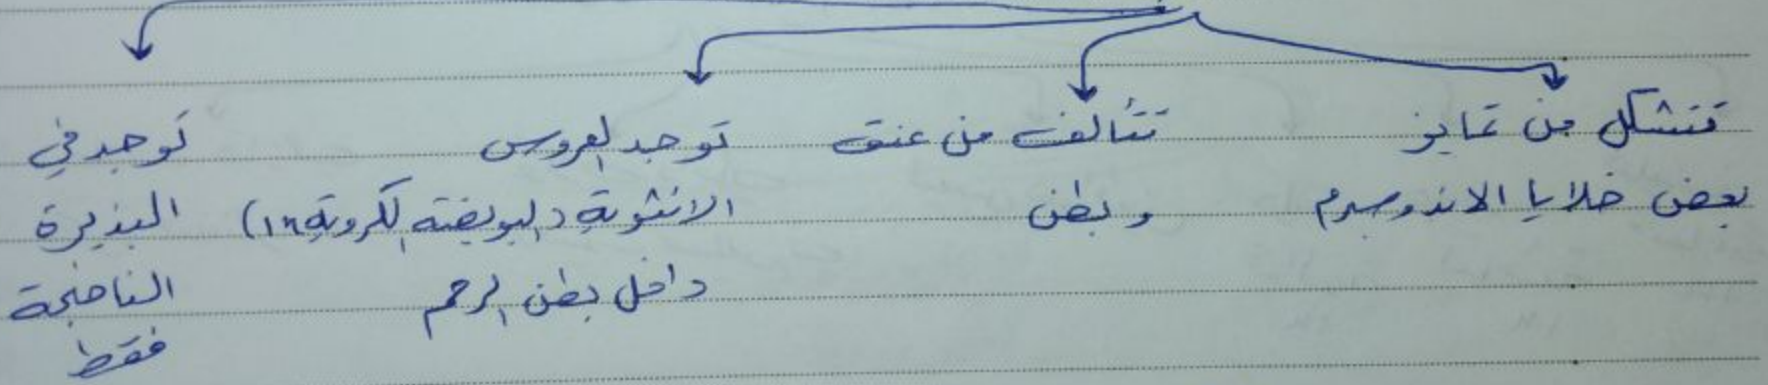 تتشكل من تمايز
بعض خلايا الاندوسبرم
تتألف من عنق
وبطن
توجد العروس
الانثوية (البويضة الكروية 1n)
داخل بطن الرحم
توجد في
البذيرة
الناضجة
فقط